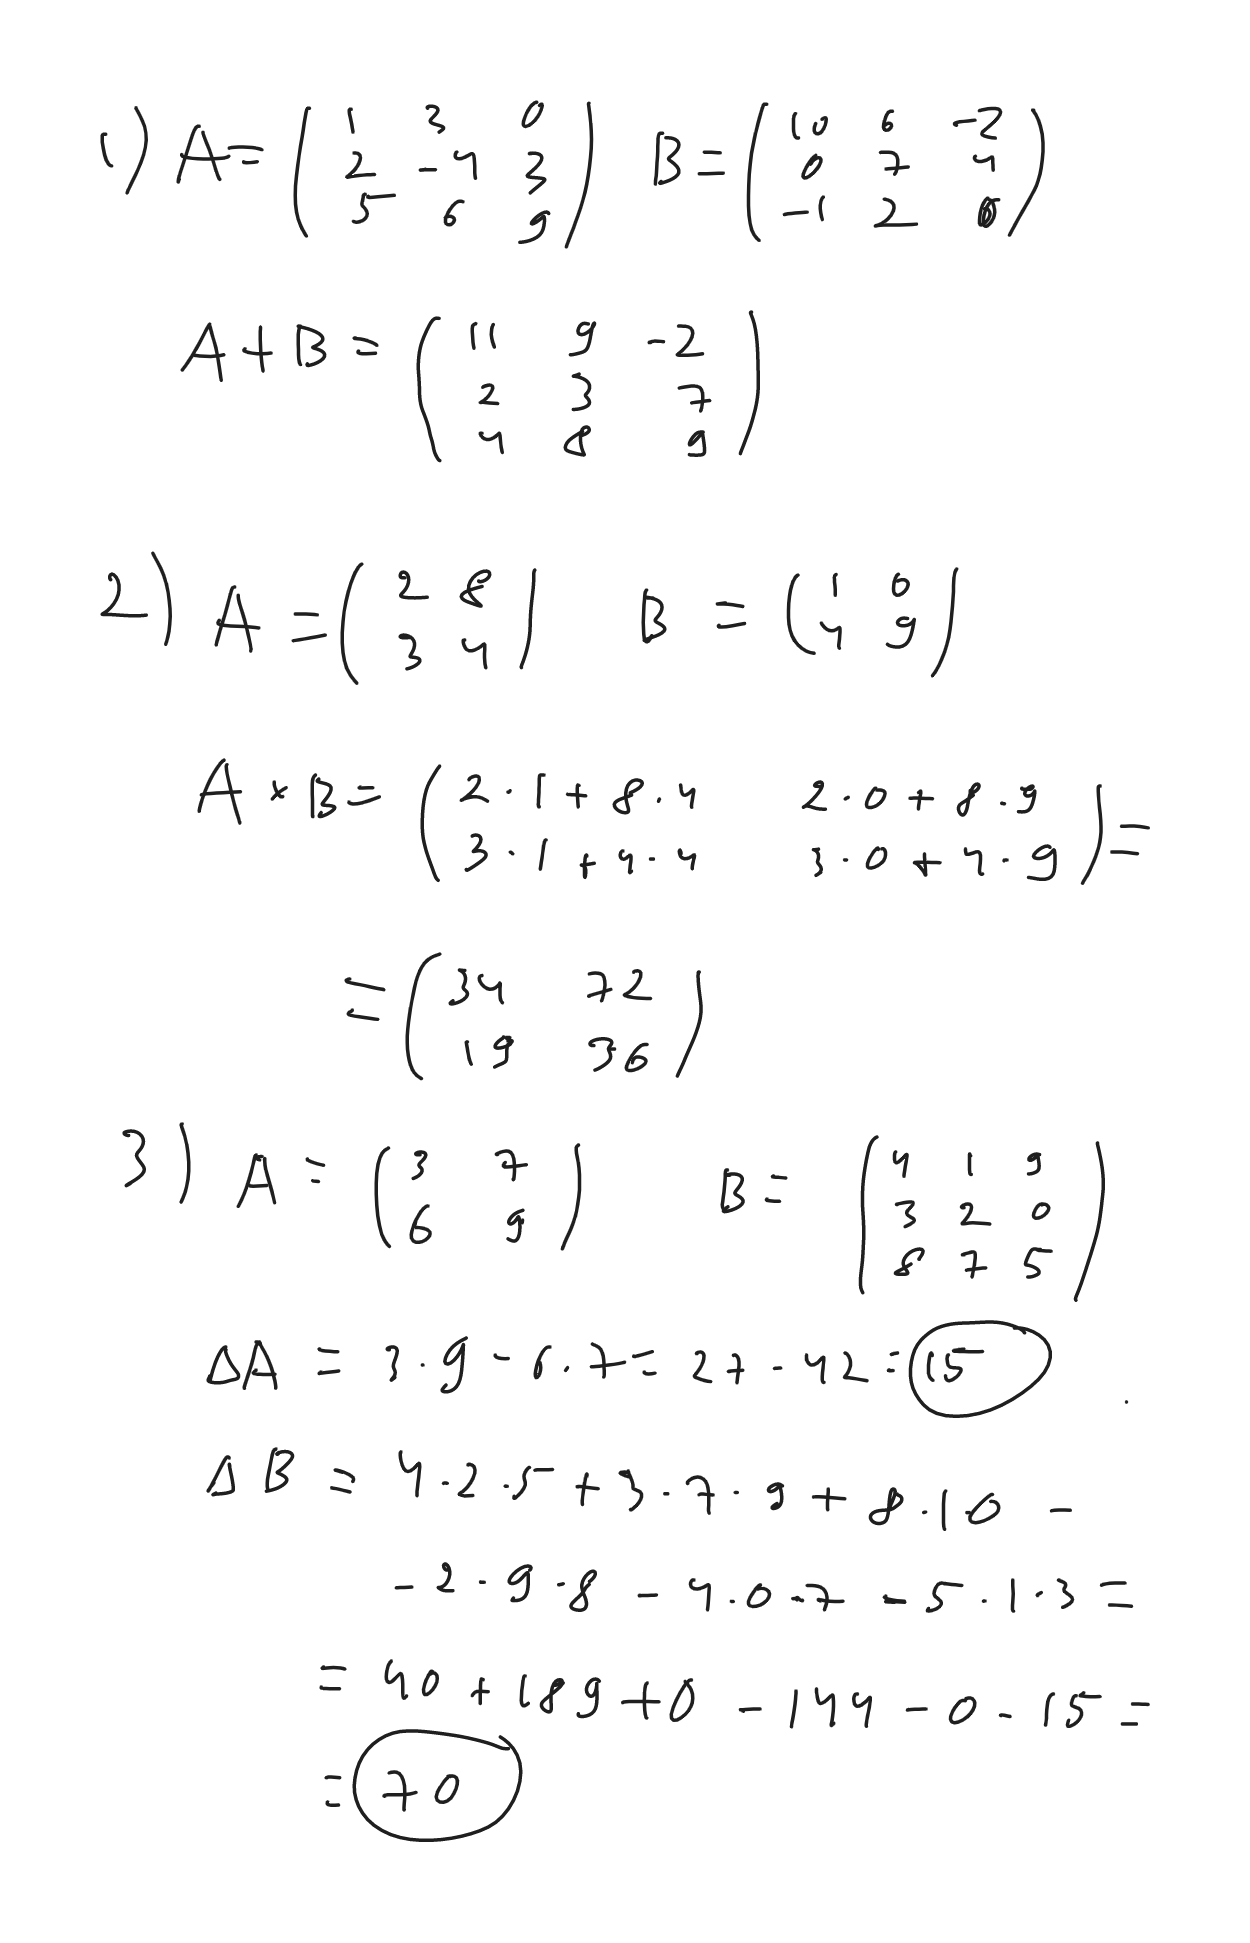 1) A = ( 1 3 0 ) B = ( 10 6 -2 )
2 -4 3 0 7 4
5 6 9 -1 2 0
A + B = ( 11 9 -2 )
2 3 7
4 8 9
2) A = ( 2 8 ) B = ( 1 0 )
3 4 4 9
A × B = ( 2 · 1 + 8 · 4 2 · 0 + 8 · 9 ) =
3 · 1 + 4 · 4 3 · 0 + 4 · 9
= ( 34 72 )
19 36
3) A = ( 3 7 ) B = ( 4 1 9 )
6 9 3 2 0
8 7 5
ΔA = 3 · 9 - 6 · 7 = 27 - 42 = 15
ΔB = 4 · 2 · 5 + 3 · 7 · 9 + 8 · 1 · 0 -
- 2 · 9 · 8 - 4 · 0 · 7 - 5 · 1 · 3 =
= 40 + 189 + 0 - 144 - 0 - 15 =
= 70